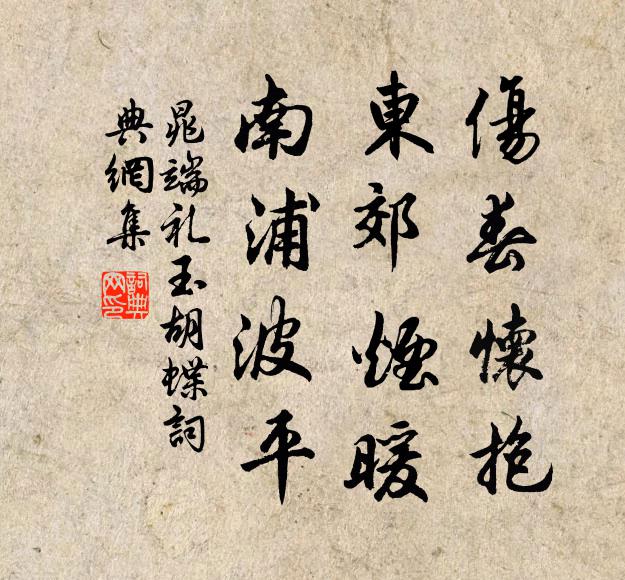 傷春懷抱
東郊煙暖
南浦波平
晁端礼玉胡蝶詞
典網集
詞典網印